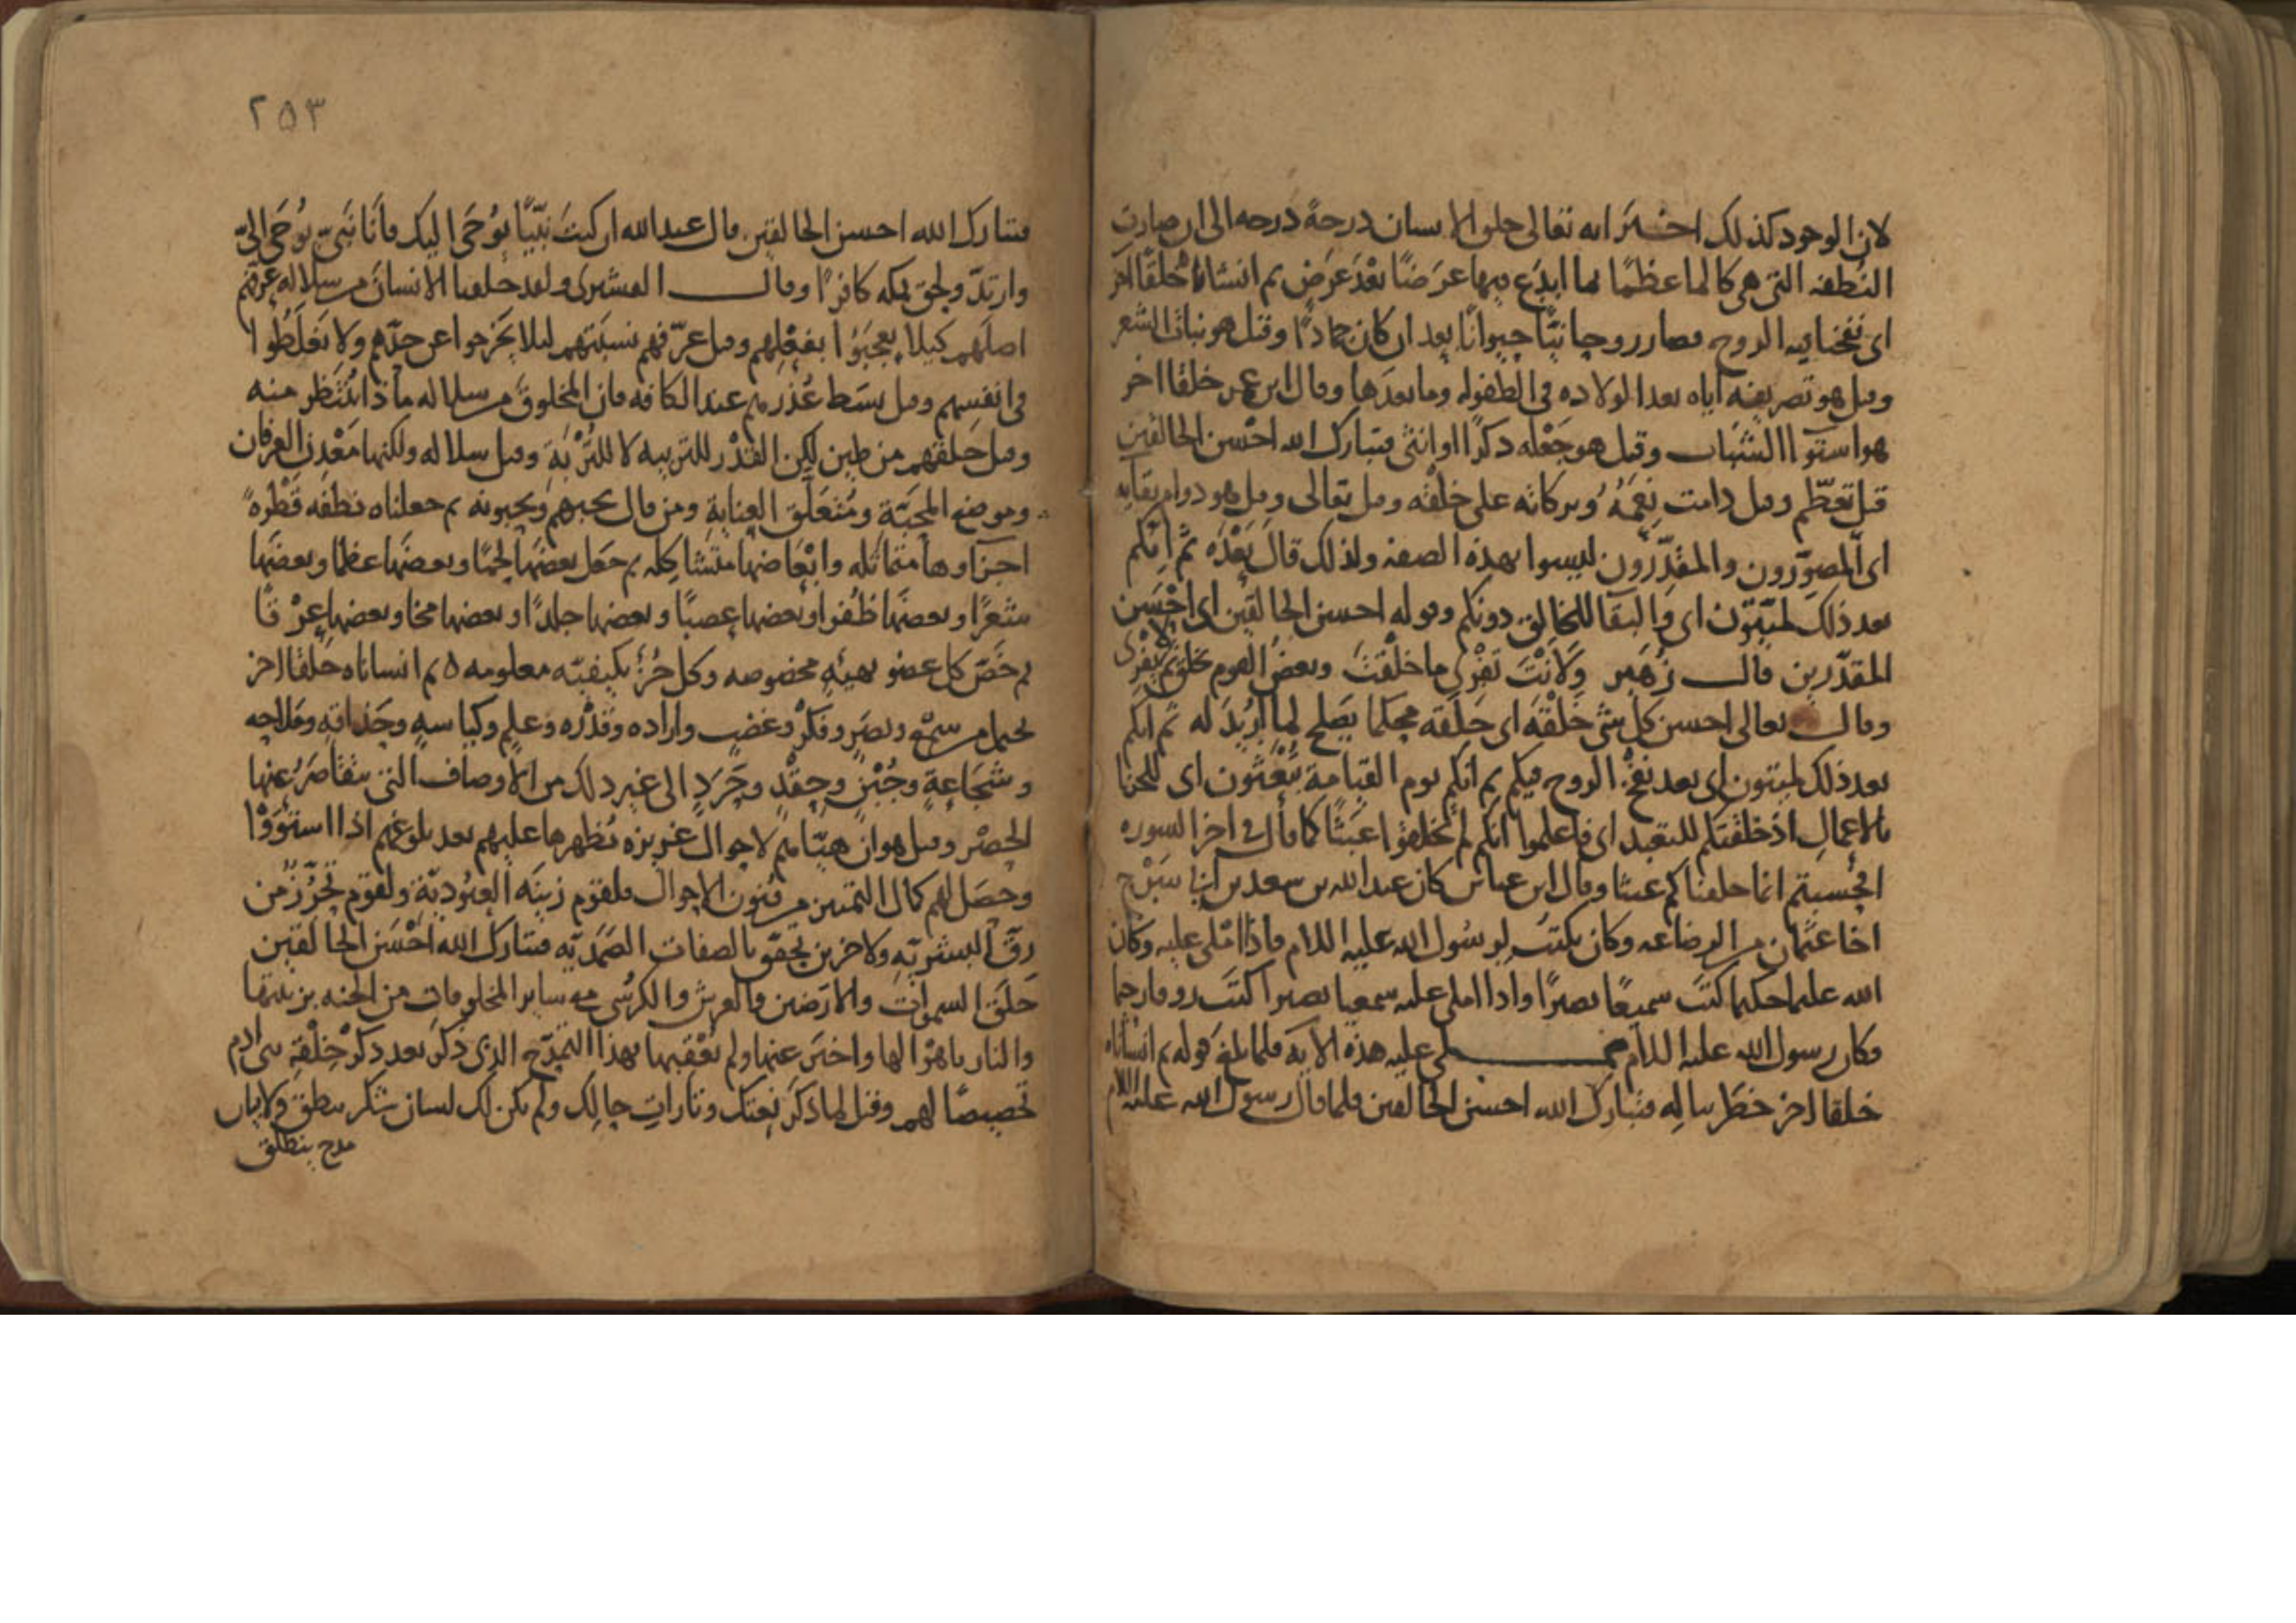 لان الوجود كذلك اخبر انه تعالى خلق الانسان درجة درجه الى ان صارت
النطفه التى هى كالماء عظمًا بما ابدع فيها عرضًا بعد عرض ثم انشاناه خلقًا آخر
اى نفخنا فيه الروح فصار روحانيًّا حيوانًا بعد ان كان جمادًا وقيل هو نبات الشعر
وقيل هو تصريفه اياه بعد الولاده فى الطفوله وما بعدها وقال ابن عمر خلقا اخر
هو استوا الشباب وقيل هو جعله ذكرًا او انثى فتبارك الله احسن الخالقين
قيل تعظّم وقيل دامت نعمه وبركاته على خلقه وقيل تعالى وقيل هو دوام بقايه
اى المصوّرون والمقدّرون ليسوا بهذه الصفه ولذلك قال بعده ثم انكم
بعد ذلك لميّتون اى والبقا للخالق دونكم وقوله احسن الخالقين اى احسن
المقدّرين قال زهير ولانت تفرى ما خلقت وبعض القوم يخلق ثم لا يفرى
وقال تعالى احسن كل شى خلقه اى خلقه محكما يصلح لما اريد له ثم انكم
بعد ذلك لميتون اى بعد نفخ الروح فيكم ثم انكم يوم القيامة تبعثون اى للجزا
بالاعمال اذ خلقتكم للتعبد اى فاعلموا انكم لم تخلقوا عبثًا كما قال فى اخر السوره
افحسبتم انما خلقناكم عبثا وقال ابن عباس كان عبد الله بن سعد بن ابى سرح
اخا عثمان من الرضاعه وكان يكتب لرسول الله عليه السلام فاذا املى عليه وكان
الله عليما حكيما كتب سميعًا بصيرًا واذا املى عليه سميعا بصيرا كتب روفا رحيما
وكان رسول الله عليه السلام يملى عليه هذه الآية فلما بلغ قوله ثم انشاناه
خلقا اخر خطر بباله فتبارك الله احسن الخالقين فلما قال رسول الله عليه السلام
٢٥٣
فتبارك الله احسن الخالقين قال عبد الله ان كنت نبيًّا يوحى اليك فانا نبىّ يوحى الىّ
وارتدّ ولحق بمكه كافرًا وقال القشيرى ولقد خلقنا الانسان من سلاله عرّفهم
اصلهم كيلا يعجبوا بفعلهم وقيل عرّفهم نسبتهم ليلا يخرجوا عن حدّهم ولا يغلطوا
فى انفسهم وقيل بسط عذرهم عند الكافه فان المخلوق من سلاله ماذا ينتظر منه
وقيل خلقهم من طين لكن القدر للتربيه لا للتربة وقيل سلاله ولكنها معدن العرفان
وموضع المحبّة ومتعلّق العناية ومن قال يحبهم ويحبونه ثم جعلناه نطفه قطرة
اجزاوها متماثله وابعاضها متشاكله ثم جعل بعضها لحمًا وبعضها عظما وبعضها
شعرًا وبعضها ظفرا وبعضها عصبًا وبعضها جلدًا وبعضها مخا وبعضها عرقًا
ثم خصّ كل عضو بهيئه مخصوصه وكل جزء بكيفيّه معلومه ٥ ثم انشاناه خلقًا اخر
من سمع وبصر وفكر وغضب واراده وقدره وعلم وكياسه
وشجاعة وجبن وحقد وجرد الى غير ذلك من الاوصاف التى يتقاصر عنها
الحصر وقيل هو ان هيّاهم لاحوال عزيزه يظهرها عليهم بعد بلوغهم اذا استووا
وحصل لهم كمال التمييز من فنون الاحوال فلقوم زينه العبوديّة ولقوم تحرّز من
رقّ البشريّه ولاخرين تحقّق بالصفات الصمديّه فتبارك الله احسن الخالقين
خلق السموات والارضين والعرش والكرسى مع ساير المخلوقات من الجنه بزينتها
والنار باهوالها واخبر عنها ولم يعقبها بهذا التمدّح الذى ذكر بعد ذكر خلقة بنى ادم
تخصيصًا لهم وقيل لما ذكر نعتك وتارات حالك ولم يكن لك لسان شكر ينطق ولا بيان
مدح ينطلق